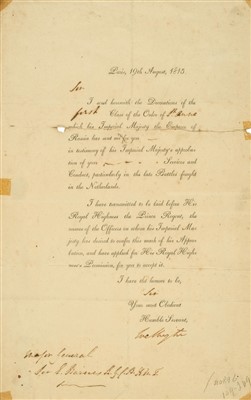 Paris, 19th August, 1815.
Sir
I send herewith the Decorations of the
first Class of the Order of St Anne
which his Imperial Majesty the Emperor of
Russia has sent me for you
in testimony of his Imperial Majesty's approba-
tion of your Services and
Conduct, particularly in the late Battles fought
in the Netherlands.
I have transmitted to be laid before His
Royal Highness the Prince Regent, the
names of the Officers on whom his Imperial Maj-
esty has desired to confer this mark of his Appro-
bation, and have applied for His Royal High-
ness's Permission, for you to accept it.
I have the honour to be,
Sir
Your most Obedient
Humble Servant,
Major General
Sir E Barnes